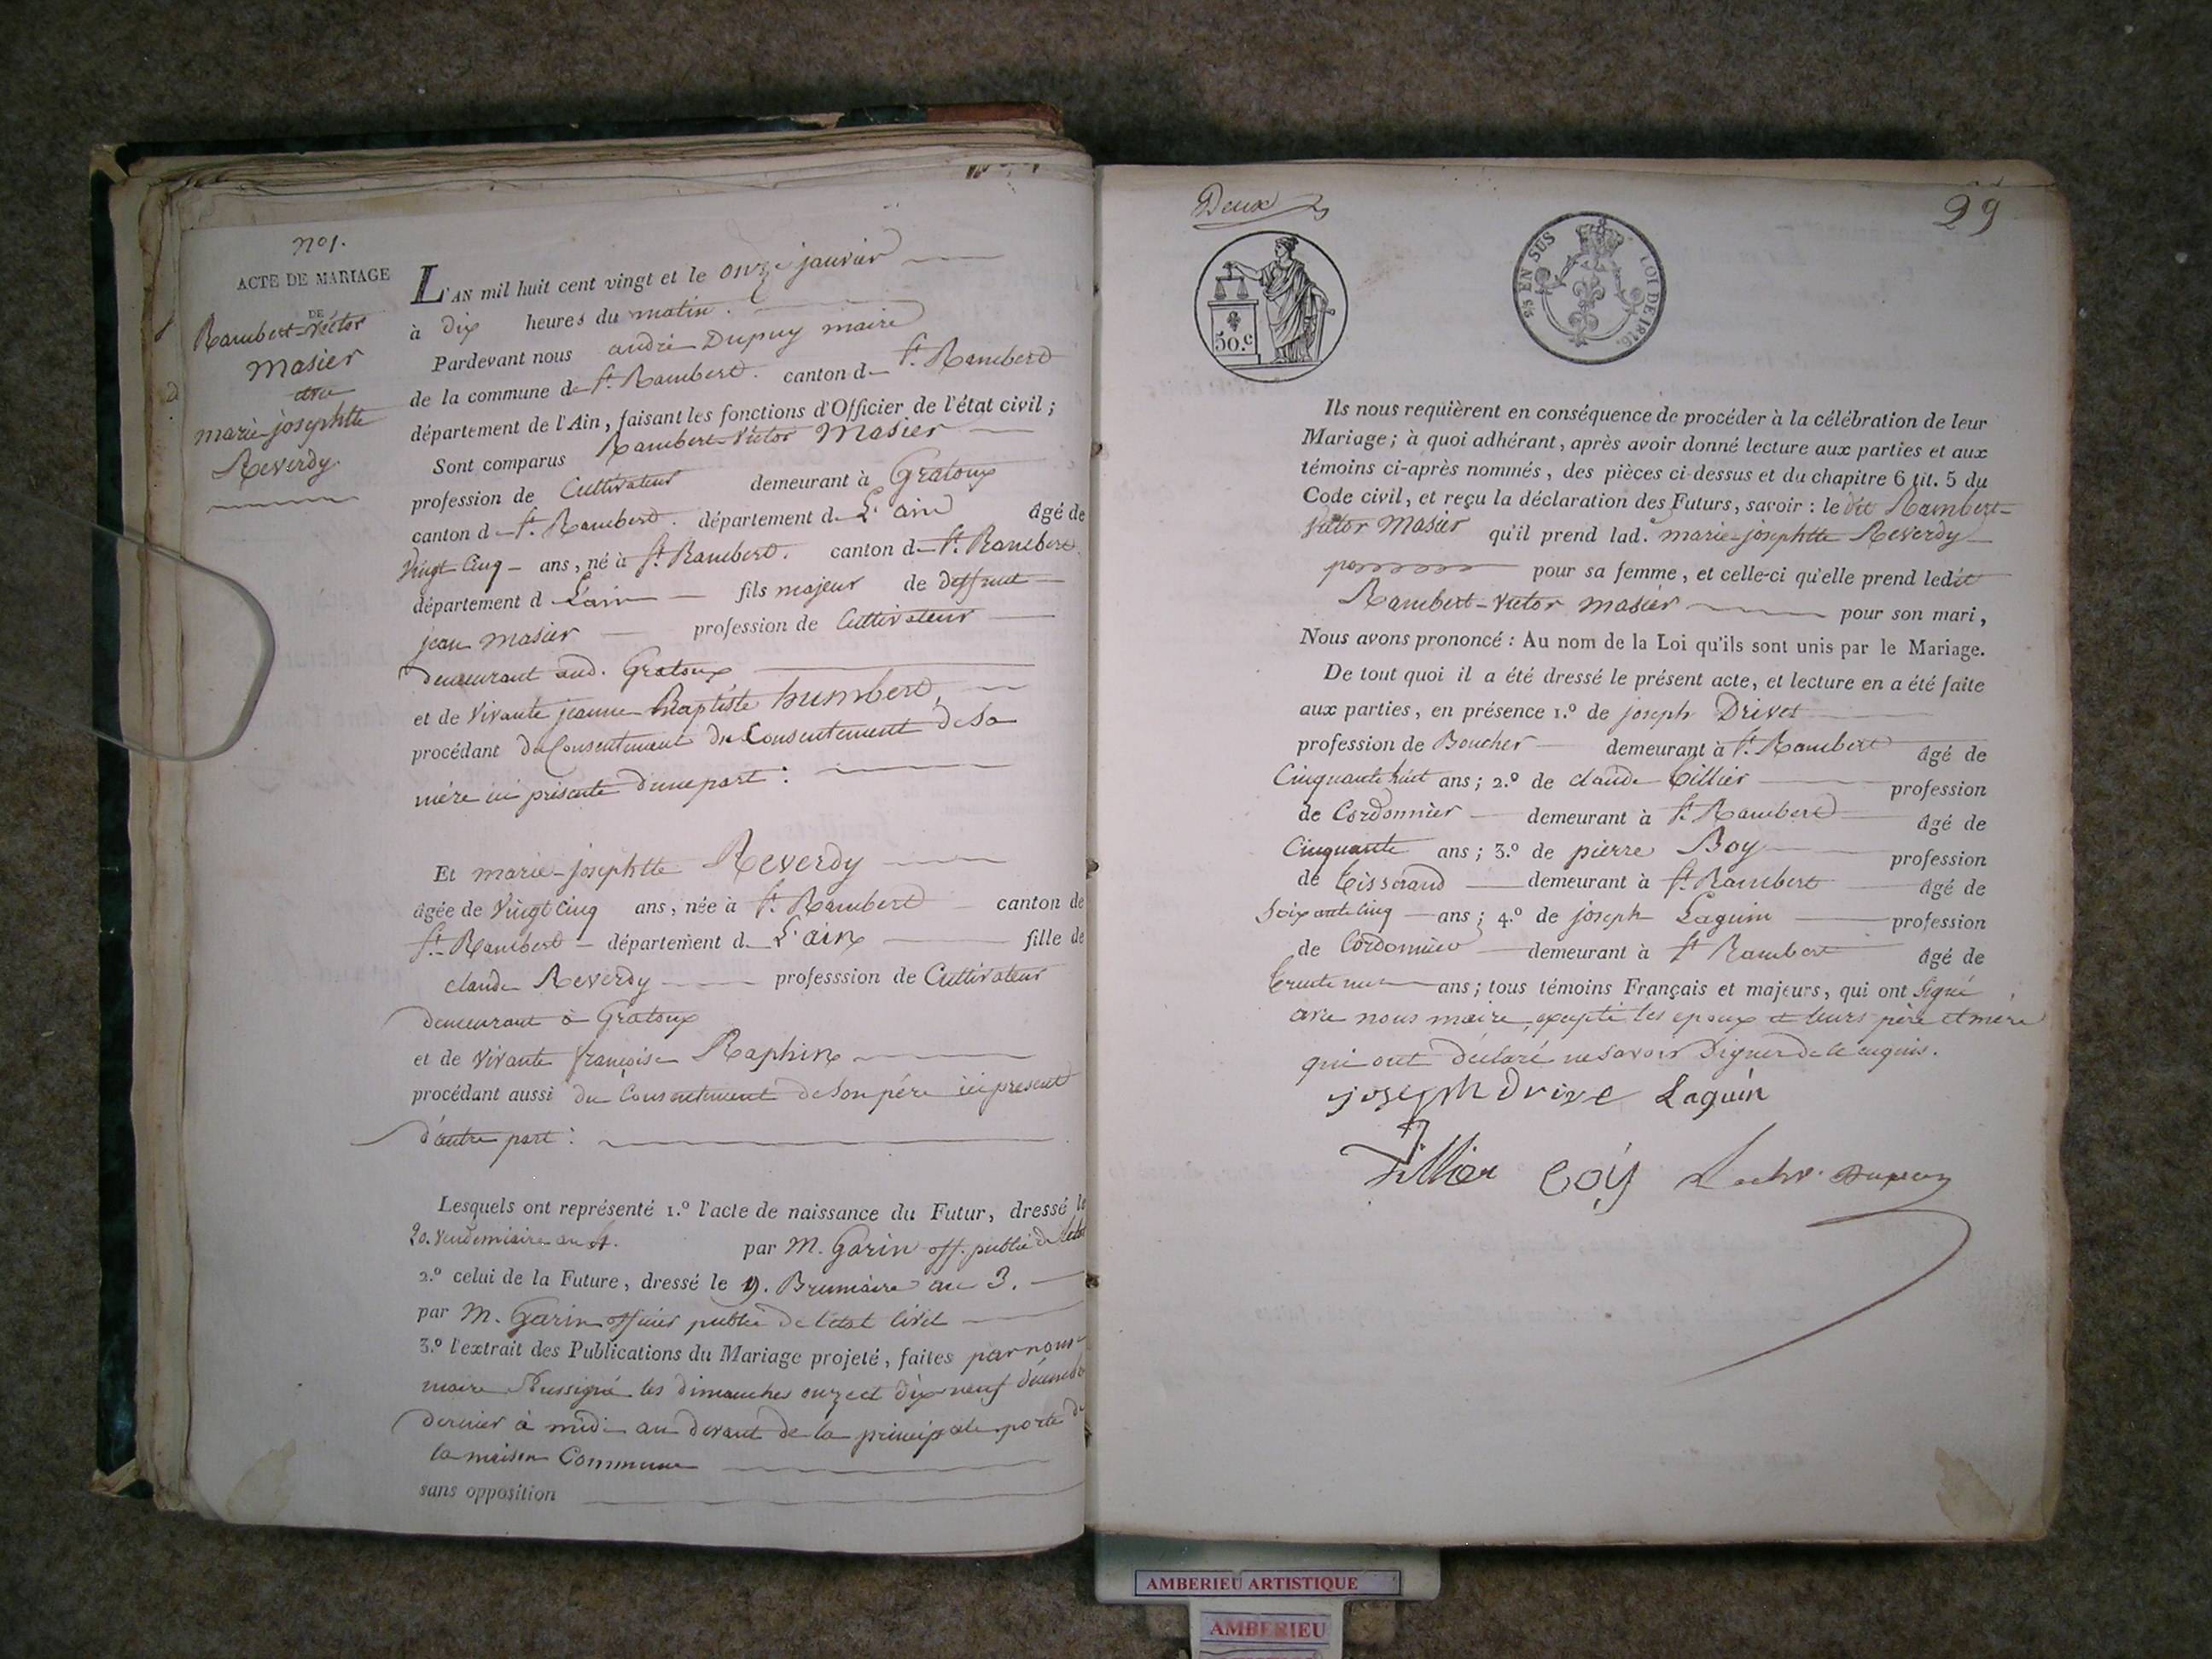 no 1.
ACTE DE MARIAGE
DE
Rambert-Victor
Masier
avec
marie-josephtte
Reverdy.
L'AN mil huit cent vingt et le onze janvier
à dix heures du matin.
Pardevant nous andré Dupuy maire
de la commune de St. Rambert. canton de St. Rambert
département de l'Ain, faisant les fonctions d'Officier de l'état civil;
Sont comparus Rambert-Victor Masier
profession de Cultivateur demeurant à Gratoux
canton de St. Rambert. département de L'ain âgé de
Vingt Cinq ans, né à St. Rambert. canton de St. Rambert
département d L'ain fils majeur de deffunt
jean Masier profession de Cultivateur
demeurant aud. Gratoux
et de Vivante jeanne Baptiste humbert,
procédant du Consentement du Consentement de Sa
mère ici présente d'une part:
Et marie-josephtte Reverdy
âgée de Vingt Cinq ans, née à St. Rambert canton de
St. Rambert département de L'ain fille de
claude Reverdy professsion de Cultivateur
demeurant à Gratoux
et de Vivante françoise Raphin
procédant aussi du Consentement de Son père ici present
d'autre part:
Lesquels ont représenté 1.º l'acte de naissance du Futur, dressé le
20. Vendemiaire an 4. par M. Garin off. public de l'etat
2.º celui de la Future, dressé le 9. Brumaire an 3.
par M. Garin officier public de l'état Civil
3.º l'extrait des Publications du Mariage projeté, faites par nous
maire Soussigné les dimanches onze et dix neuf
dernier à midi au devant de la principale porte de
la maison Commune
sans opposition
Deux
29
50.c
25 EN SUS
LOI DE 1816.
Ils nous requièrent en conséquence de procéder à la célébration de leur
Mariage; à quoi adhérant, après avoir donné lecture aux parties et aux
témoins ci-après nommés, des pièces ci-dessus et du chapitre 6 tit. 5 du
Code civil, et reçu la déclaration des Futurs, savoir: le dit Rambert-
Victor Masier qu'il prend lad. marie-josephtte Reverdy
pour sa femme, et celle-ci qu'elle prend ledit
Rambert-Victor Masier pour son mari,
Nous avons prononcé: Au nom de la Loi qu'ils sont unis par le Mariage.
De tout quoi il a été dressé le présent acte, et lecture en a été faite
aux parties, en présence 1.º de joseph Drivet
profession de Boucher demeurant à St. Rambert âgé de
Cinquante huit ans; 2.º de claude Tillier profession
de Cordonnier demeurant à St. Rambert âgé de
Cinquante ans; 3.º de pierre Boy profession
de Tisserand demeurant à St. Rambert âgé de
Soixante Cinq ans; 4.º de joseph Laguin profession
de Cordonnier demeurant à St Rambert âgé de
ans; tous témoins Français et majeurs, qui ont Signé
avec nous maire, excepté les epoux et leurs père et mère
qui ont déclaré ne Savoir Signer de ce enquis.
joseph drive Laguin
Tillier Boy Dupuy
AMBERIEU ARTISTIQUE
AMBERIEU